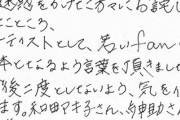 迷惑をかけたこちらにも謝し
たところ、
ーティストとして、若いfan
本となるよう言葉を頂きました
後二度としてないよう、気を付
ます。和田アキ子さん、紳助さん